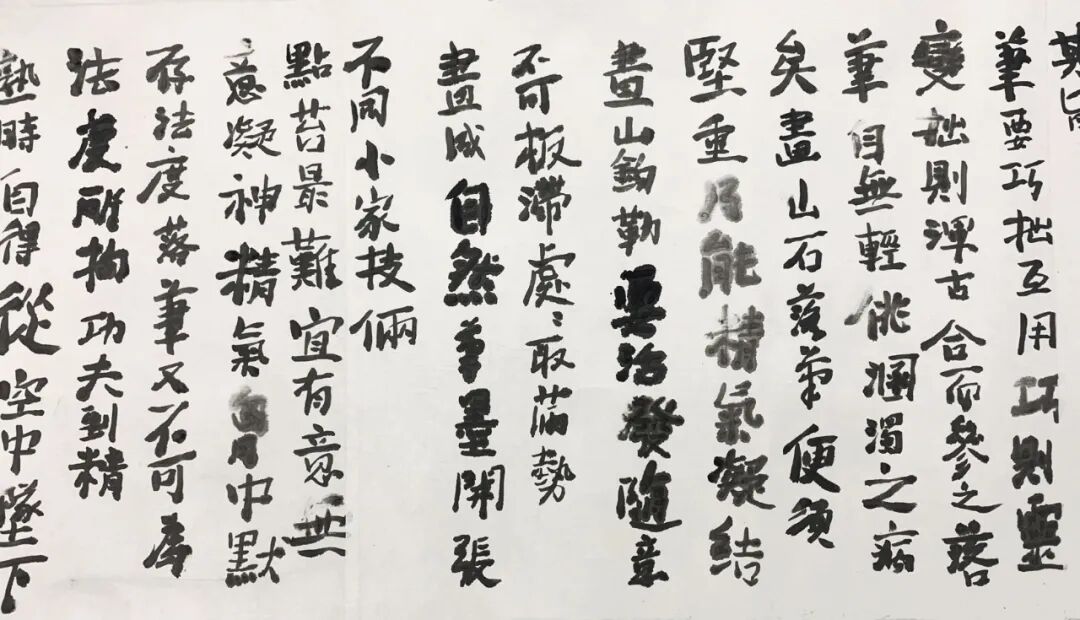 其旨
筆要巧拙互用巧則靈
變拙則渾古合而參之落
筆自無輕佻溷濁之病
矣畫山石落筆便須
堅重乃能精氣凝結
畫山鉤勒要活發隨意
不可板滯處〻取勢
畫成自然筆墨開張
不同小家技倆
點苔最難宜有意無
意凝神精氣胷中默
存法度落筆又不可為
法度所拘功夫到精
熟時自得從空中墜下